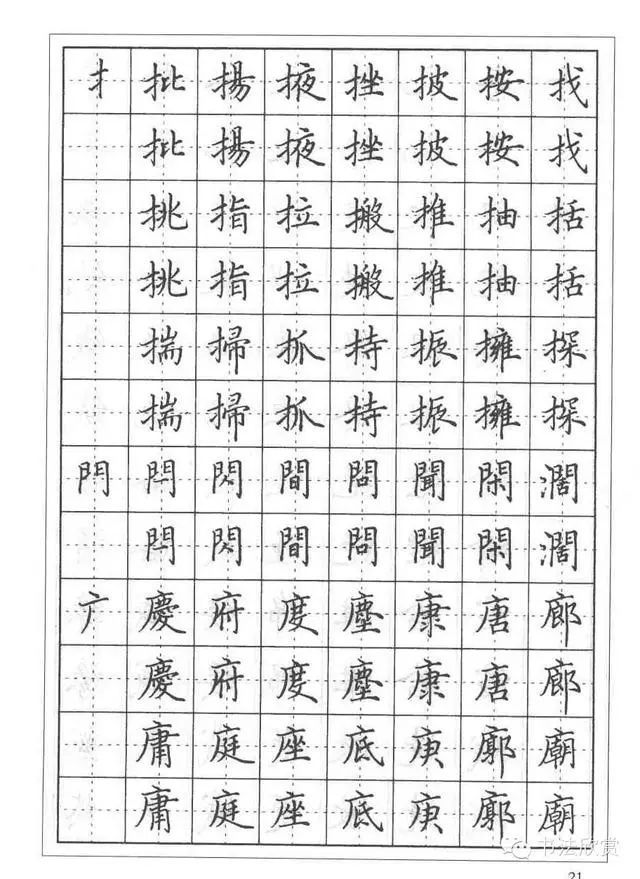 扌批揚掖挫披按找
批揚掖挫披按找
挑指拉搬推抽括
挑指拉搬推抽括
揣掃抓持振擁探
揣掃抓持振擁探
門閂閃間問聞閑濶
閂閃間問聞閑濶
广慶府度塵康唐廊
慶府度塵康唐廊
庸庭座底庚廓廟
庸庭座底庚廓廟
书法欣赏
21